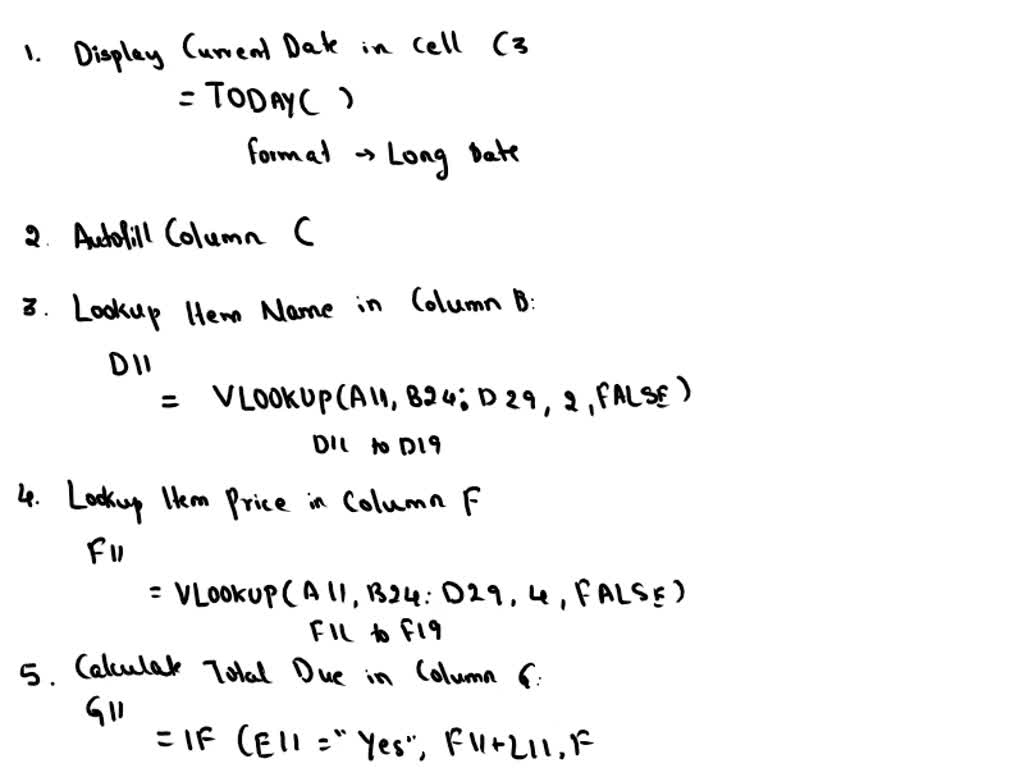 1. Display Current Date in cell C3
= TODAY( )
format → Long Date
2. Autofill Column C
3. Lookup Item Name in Column B:
D11
= VLOOKUP(A11, B24:D29, 2, FALSE)
D11 to D19
4. Lookup Item Price in Column F
F11
= VLOOKUP(A11, B24:D29, 4, FALSE)
F11 to F19
5. Calculate Total Due in Column G:
G11
= IF (E11 = "Yes", F11+L11, F